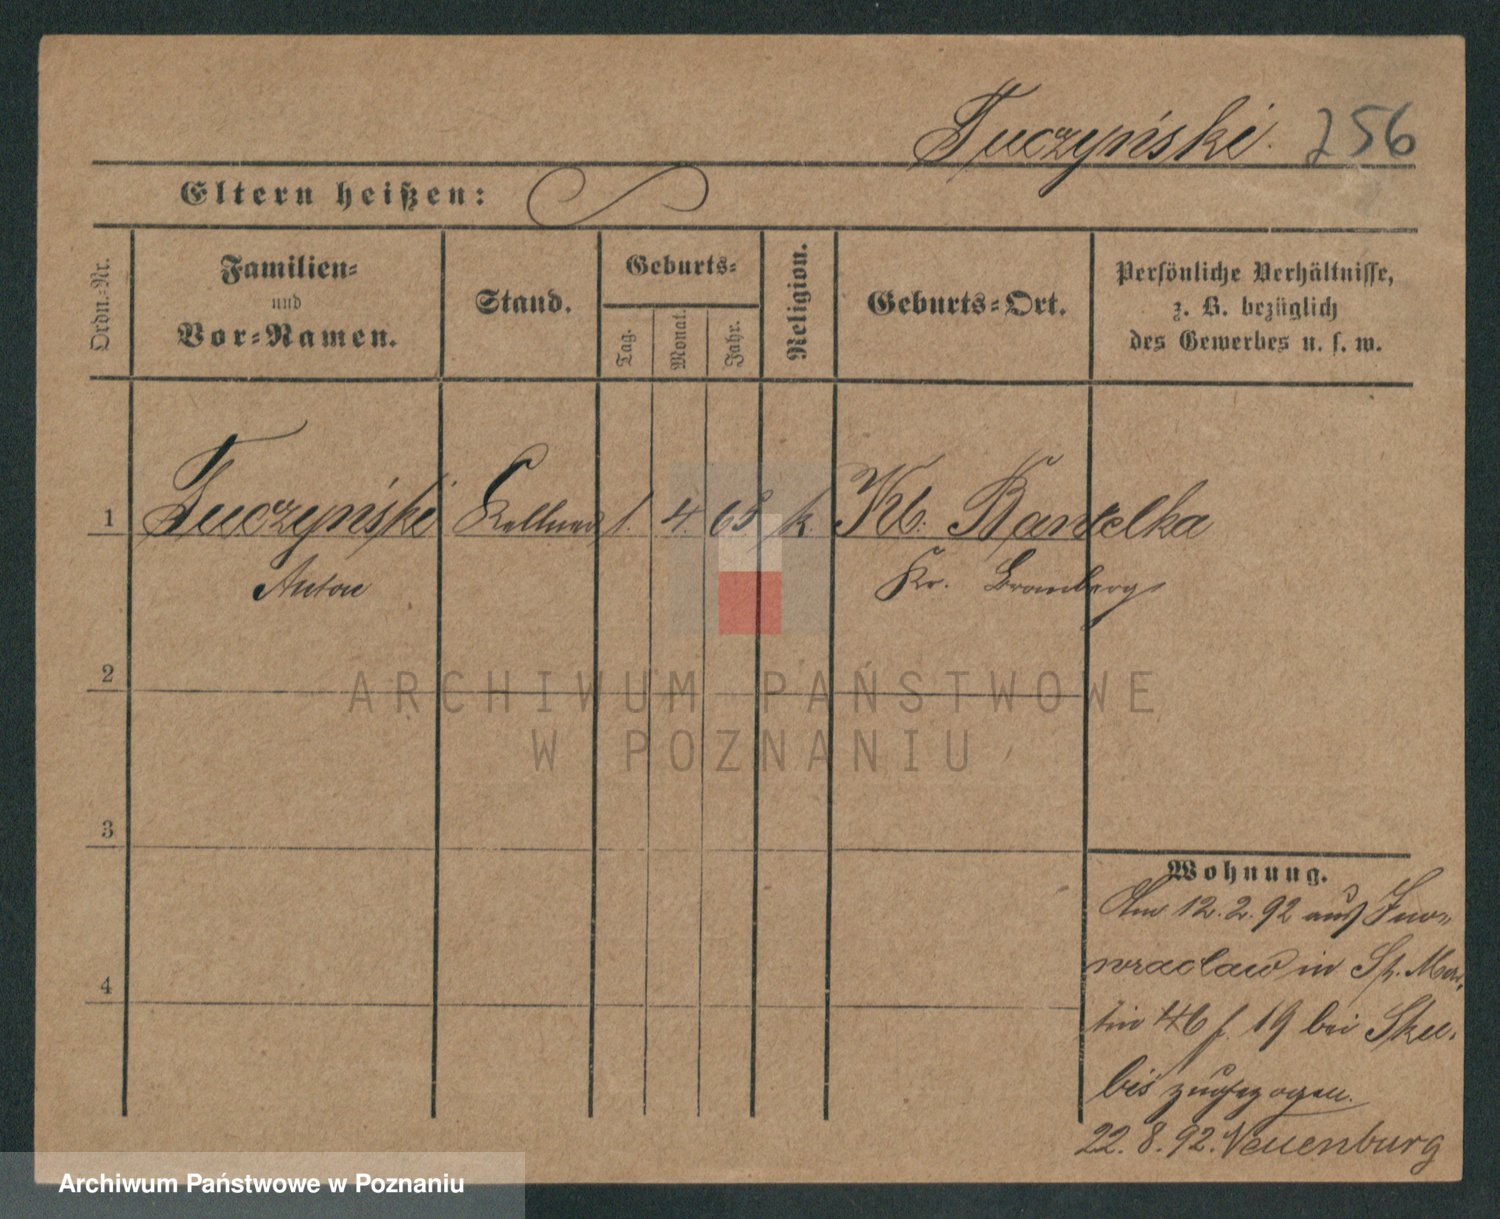 Tuczyński. 256
Eltern heißen:
Ordn.-Nr.
Familien-
und
Vor-Namen.
Stand.
Geburts-
Tag.
Monat.
Jahr.
Religion.
Geburts-Ort.
Persönliche Verhältnisse,
z. B. bezüglich
des Gewerbes u. s. w.
1 Tuczyński Kellner 1. 4. 68 k. Kl. Bartelka
Anton Kr. Bromberg
2
3
4
Wohnung.
Am 12.2.92 aus Ino-
wraclaw in St. Mar-
tin 46 19 bei Sku-
bis zugezogen.
22.8.92. Neuenburg
ARCHIWUM PAŃSTWOWE
W POZNANIU
Archiwum Państwowe w Poznaniu